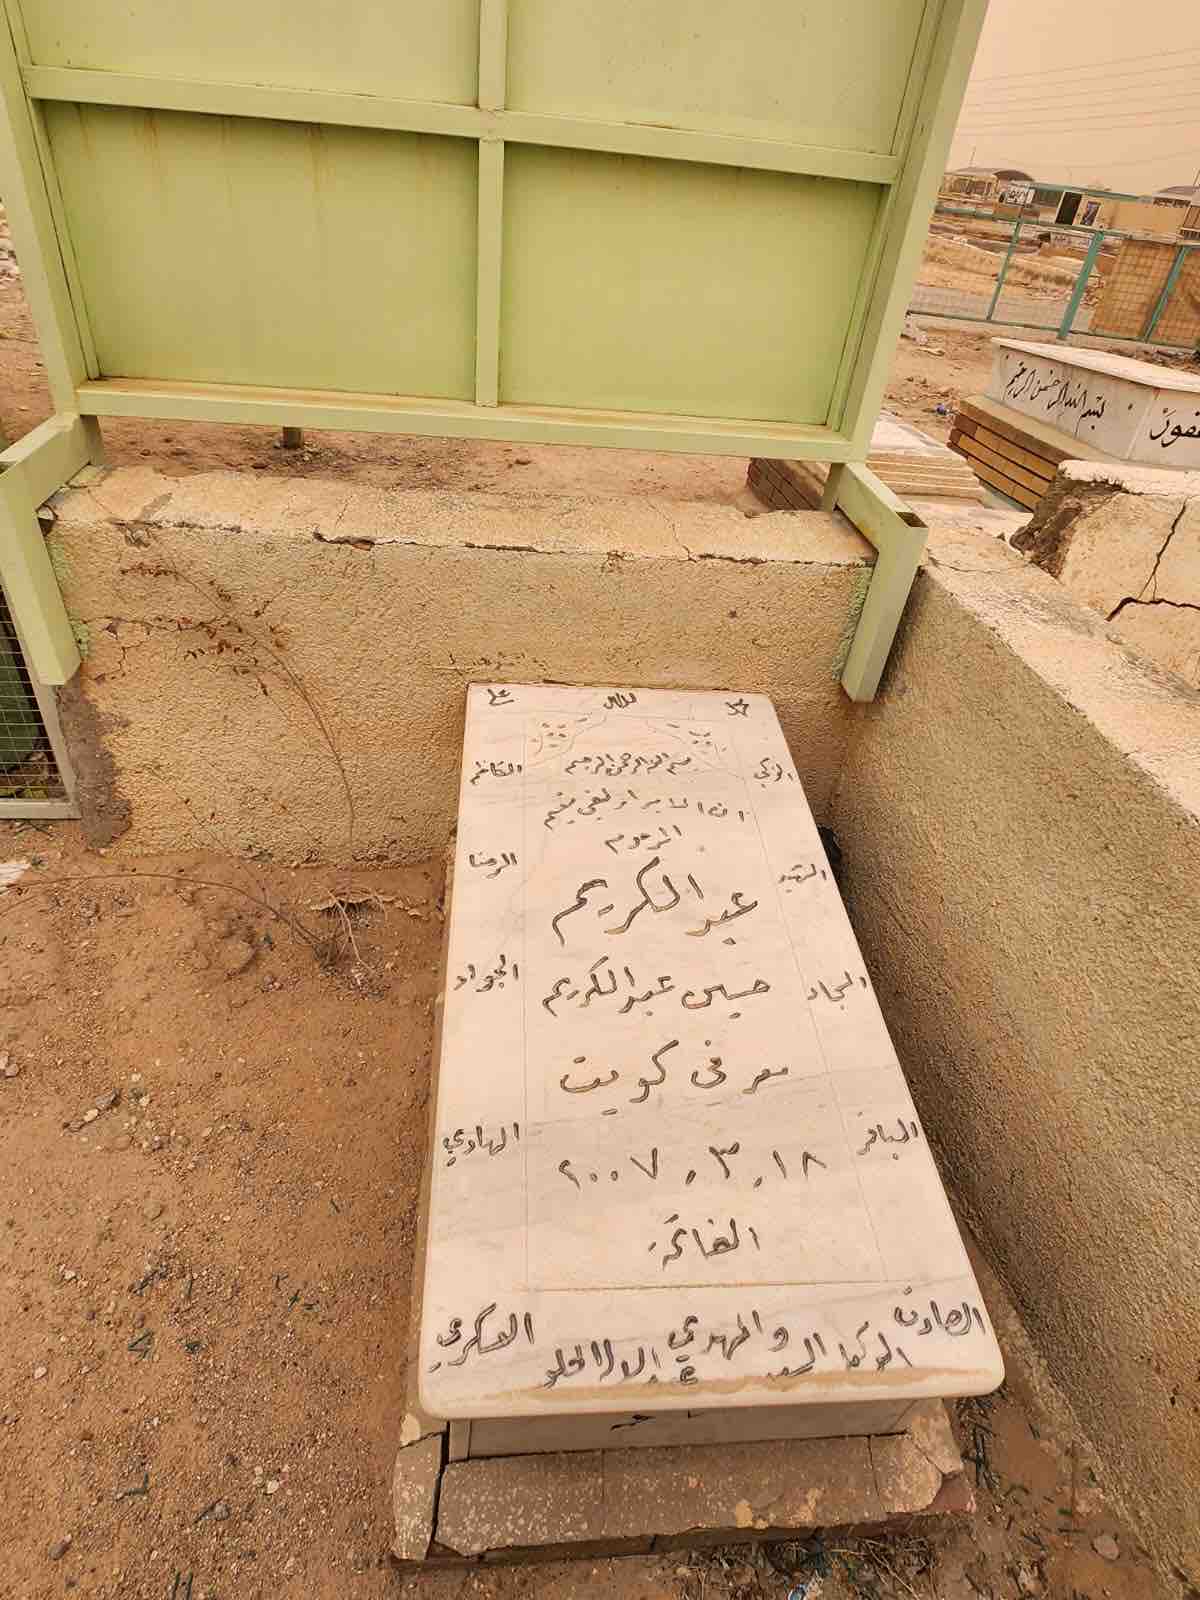 محمد الله علي
بسم الله الرحمن الرحيم
ان الابرار لفي نعيم
المرحوم
عبد الكريم
حسين عبد الكريم
معرفي كويت
١٨ . ٣ . ٢٠٠٧
الفاتحة
الزكي
الشهيد
السجاد
الباقر
الصادق
الكاظم
الرضا
الجواد
الهادي
العسكري
والمهدي
بسم الله الرحمن الرحيم